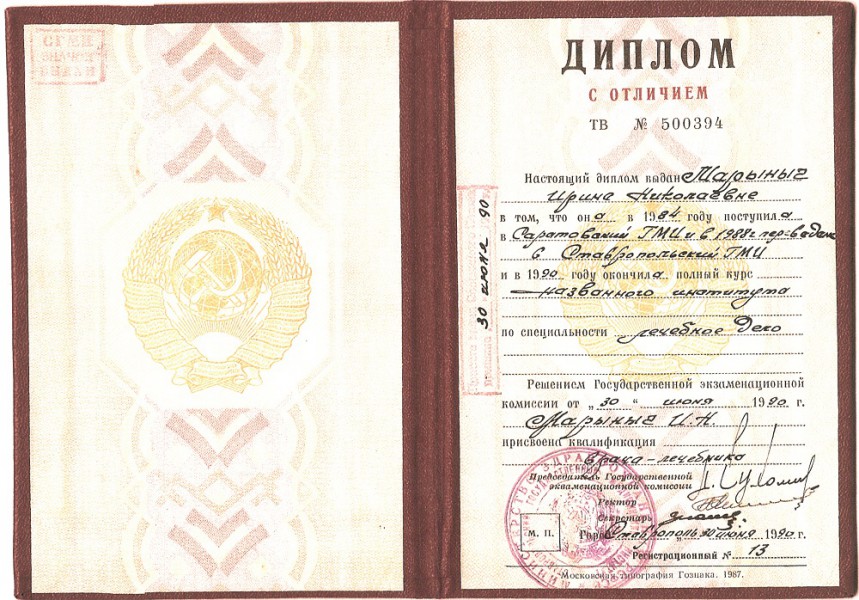 ДИПЛОМ
С ОТЛИЧИЕМ
ТВ № 500394
Настоящий диплом выдан Марыныч
Ирине Николаевне
в том, что она в 1984 году поступила
в Саратовский ГМИ и в 1988г переведена
в Ставропольский ГМИ
и в 1990 году окончила полный курс
названного института
по специальности лечебное дело
Решением Государственной экзаменационной
комиссии от „30“ июня 1990 г.
Марыныч И.Н.
присвоена квалификация
врача-лечебника
Председатель Государственной
экзаменационной комиссии
Ректор
Секретарь
М. П.
Город Ставрополь 30 июня 1990 г.
Регистрационный № 13
Московская типография Гознака. 1987.
30 июня 90